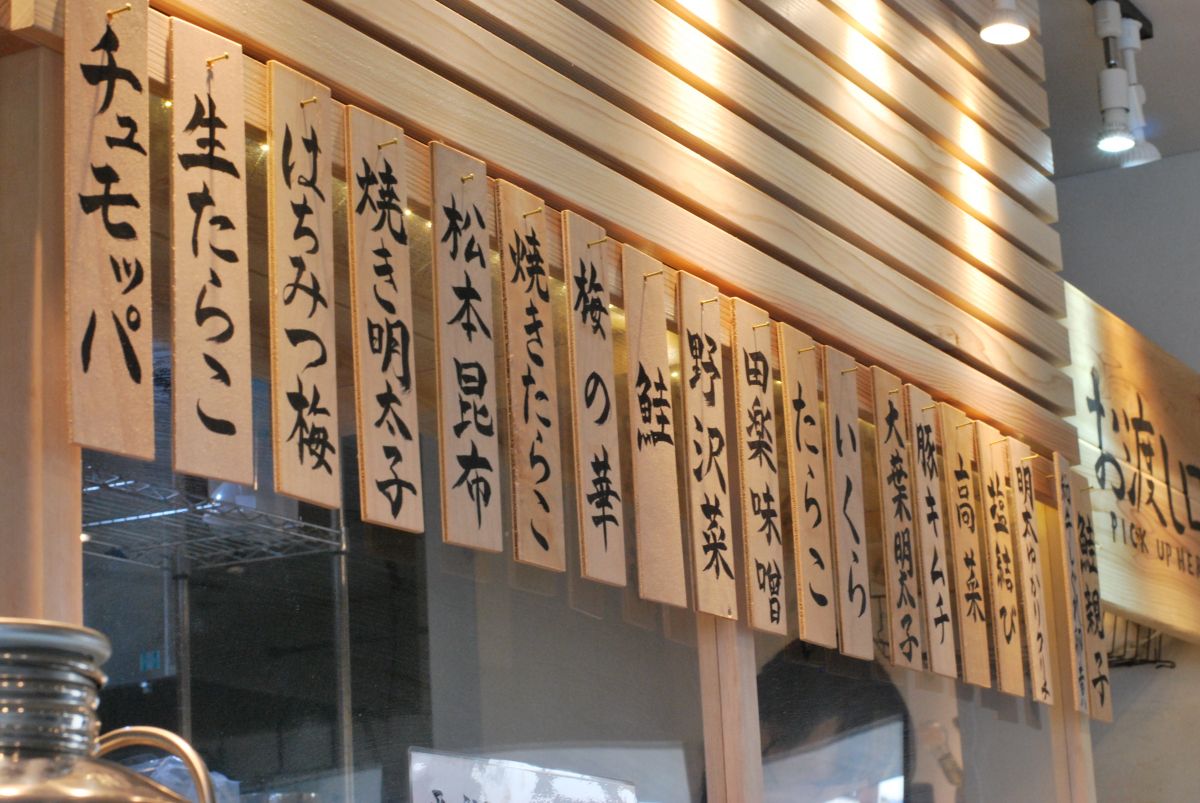 チュモッパ
生たらこ
はちみつ梅
焼き明太子
松本昆布
焼きたらこ
梅の華
鮭
野沢菜
田楽味噌
たらこ
いくら
大葉明太子
豚キムチ
高菜
塩結び
明太やかりフリ
鮭親子
お渡し口
PICK UP HER